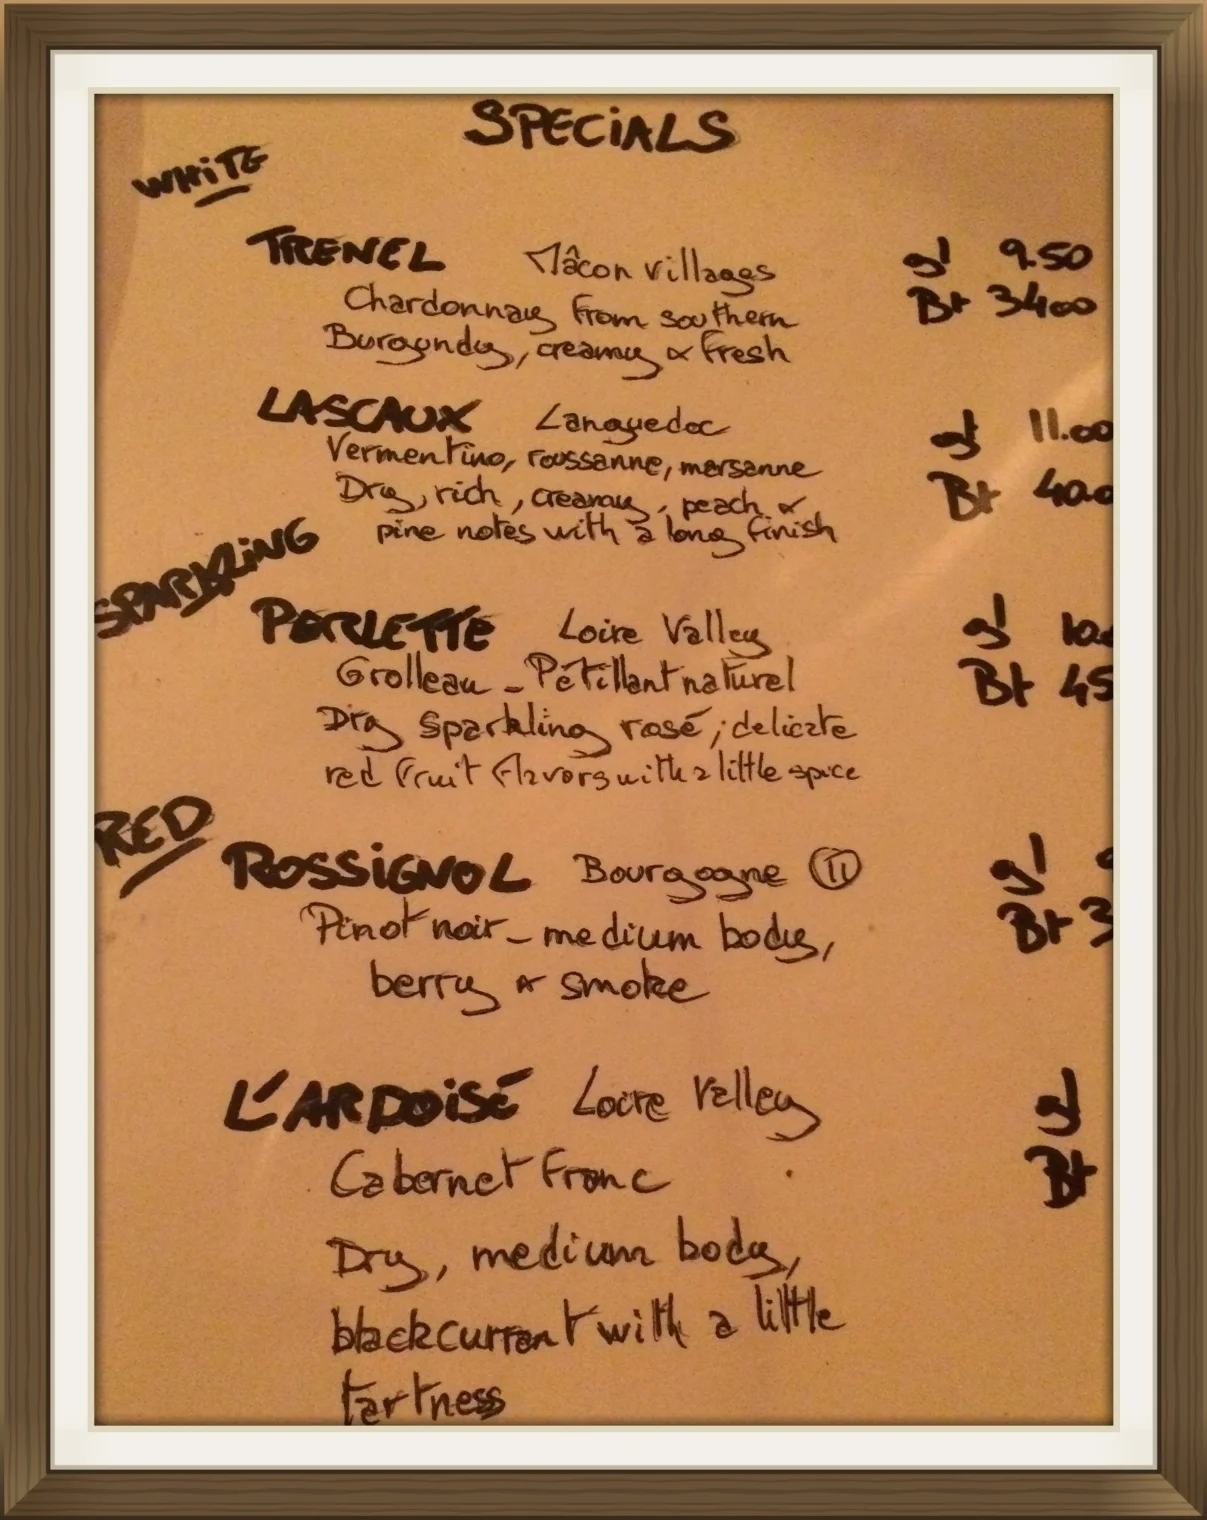 SPECIALS
WHITE
TRENEL Mâcon villages gl 9.50
Chardonnay from southern Bt 34.00
Burgundy, creamy & fresh
LASCAUX Languedoc gl 11.00
Vermentino, roussanne, marsanne
Dry, rich, creamy, peach & Bt 40.0
pine notes with a long finish
SPARKLING
PERLETTE Loire Valley gl 10.
Grolleau - Pétillant naturel Bt 45
Dry sparkling rosé, delicate
red fruit flavors with a little spice
RED
ROSSIGNOL Bourgogne 11 gl
Pinot noir - medium body, Bt 3
berry & smoke
L'ARDOISÉ Loire Valley gl
Cabernet Franc Bt
Dry, medium body,
blackcurrant with a little
tartness